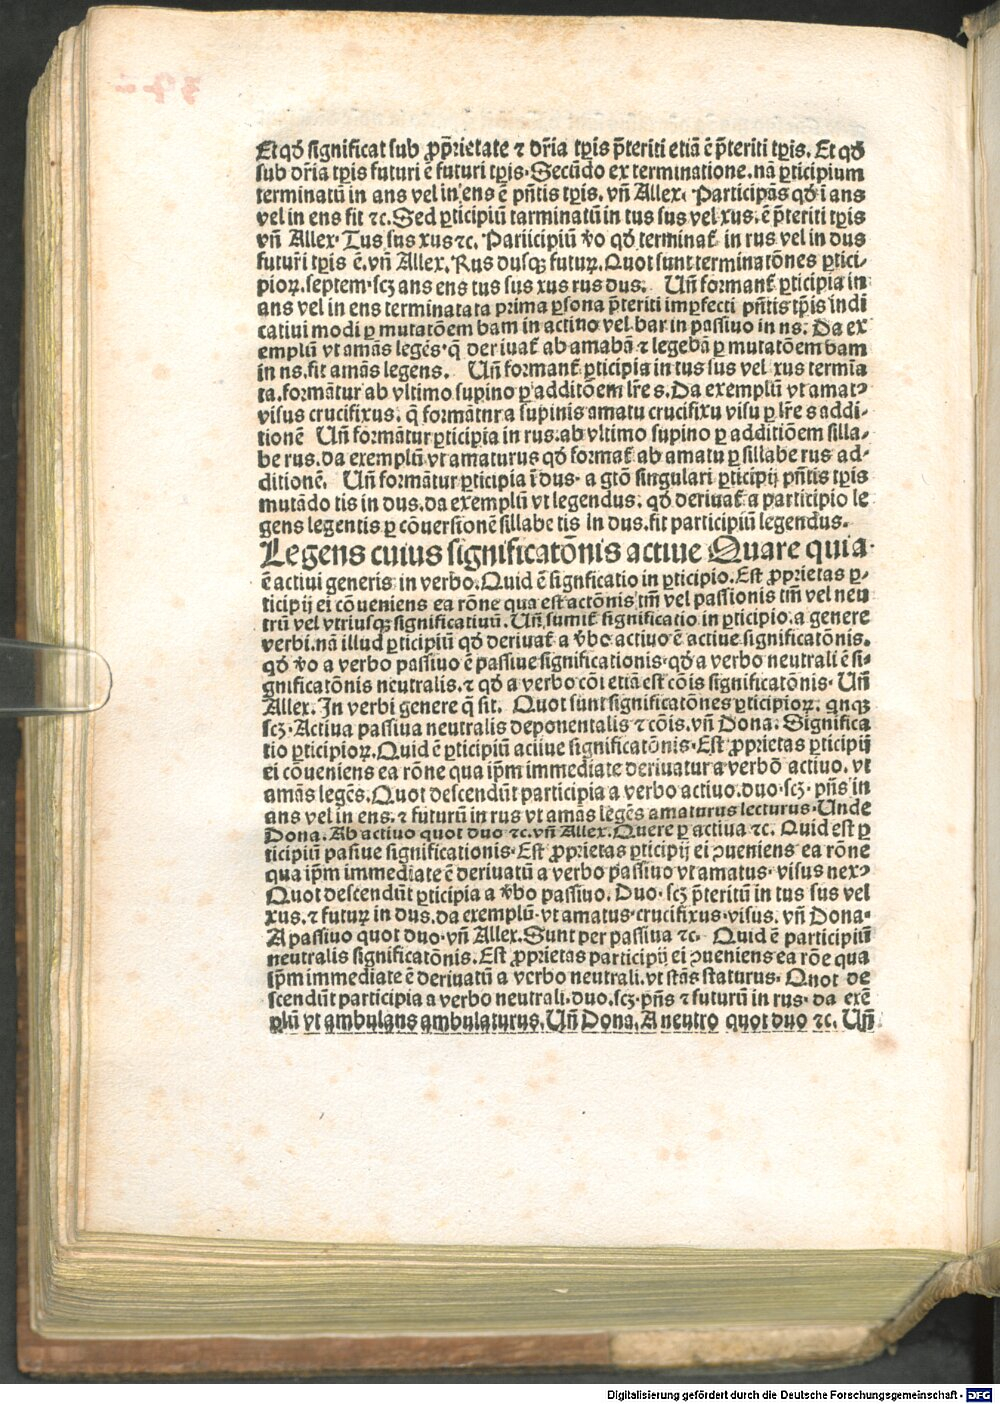 Et qd̄ significat sub ꝓp̄rietate ⁊ dr̄ia tꝑis p̄teriti etiā ē p̄teriti tꝑis. Et qd̄
sub dr̄ia tꝑis futuri ē futuri tꝑis. Secūdo ex terminatione. nā ꝑticipium
terminatū in ans vel in ens ē pn̄tis tꝑis. vn̄ Allex. Participās qd̄ ī ans
vel in ens fit ⁊c. Sed ꝑticipiū tarminatū in tus sus vel xus. ē p̄teriti tꝑis
vn̄ Allex. Tus sus xus ⁊c. Pariicipiū v̄o qd̄ terminat̄ in rus vel in dus
futuri tꝑis ē. vn̄ Allex. Rus dusqꝫ futuꝝ. Quot sunt terminatōnes ꝑtici-
pioꝝ. septem. scꝫ ans ens tus sus xus rus dus. Un̄ formant̄ ꝑticipia in
ans vel in ens terminatata prima ꝑsona p̄teriti imꝑfecti pn̄tis tꝑis indi
catiui modi ꝑ mutatōem bam in actiuo vel bar in passiuo in ns. Da ex
emplū vt amās legēs. q̄ deriuat̄ ab amabā ⁊ legebā ꝑ mutatōem bam
in ns. fit amās legens. Un̄ formant̄ ꝑticipia in tus sus vel xus termia
ta. formātur ab vltimo supino ꝑ additōem lr̄e s. Da exemplū vt amatꝰ
visus crucifixus. q̄ formātnr a supinis amatu crucifixu visu ꝑ lr̄e s addi-
tionē Un̄ formātur ꝑticipia in rus. ab vltimo supino ꝑ additiōem silla-
be rus. da exemplū vt amaturus qd̄ format̄ ab amatu ꝑ sillabe rus ad-
ditionē. Un̄ formātur ꝑticipia ī dus. a gtō singulari ꝑticipij pn̄tis tꝑis
mutādo tis in dus. da exemplū vt legendus. qd̄ deriuat̄ a participio le
gens legentis ꝑ cōuersionē sillabe tis in dus. fit participiū legendus.
Legens cuius significatōnis actiue Quare quia
ē actiui generis in verbo. Quid ē signficatio in ꝑticipio. Est ꝓprietas ꝑ-
ticipij ei cōueniens ea rōne qua est actōnis tm̄ vel passionis tm̄ vel neu
trū vel vtriusqꝫ significatiuū. Un̄ sumit̄ significatio in ꝑticipio. a genere
verbi. nā illud ꝑticipiū qd̄ deriuat̄ a v̄bo actiuo ē actiue significatōnis.
qd̄ v̄o a verbo passiuo ē passiue significationis. qd̄ a verbo neutrali ē si-
gnificatōnis neutralis. ⁊ qd̄ a verbo cōi etiā est cōis significatōnis. Un̄
Allex. In verbi genere q̄ sit. Quot sunt significatōnes ꝑticipioꝝ. qnqꝫ
scꝫ. Actiua passiua neutralis deponentalis ⁊ cōis. vn̄ Dona. Significa
tio ꝑticipioꝝ. Quid ē ꝑticipiū actiue significatōnis. Est ꝓprietas ꝑticipij
ei cōueniens ea rōne qua ip̄m immediate deriuatur a verbo actiuo. vt
amās legēs. Quot descendūt participia a verbo actiuo. duo. scꝫ. pn̄s in
ans vel in ens. ⁊ futurū in rus vt amās legēs amaturus lecturus. Unde
Dona. Ab actiuo quot duo ⁊c. vn̄ Allex. Quere ꝑ actiua ⁊c. Quid est ꝑ
ticipiū pasiue significationis. Est ꝓprietas ꝑticipij ei ꝯueniens ea rōne
qua ip̄m immediate ē deriuatū a verbo passiuo vt amatus. visus nexꝰ
Quot descendūt ꝑticipia a v̄bo passiuo. Duo. scꝫ p̄teritū in tus sus vel
xus. ⁊ futuꝝ in dus. da exemplū. vt amatus. crucifixus. visus. vn̄ Dona.
A passiuo quot duo. vn̄ Allex. Sunt per passiua ⁊c. Quid ē participiū
neutralis significatōnis. Est ꝓprietas participij ei ꝯueniens ea rōe qua
ip̄m immediate ē deriuatū a verbo neutrali. vt stās staturus. Quot de
scendūt participia a verbo neutrali. duo. scꝫ. pn̄s ⁊ futurū in rus. da exē
plū vt ambulans ambulaturus. Un̄ Dona. A neutro quot duo ⁊c. Un̄
Digitalisierung gefördert durch die Deutsche Forschungsgemeinschaft - DFG